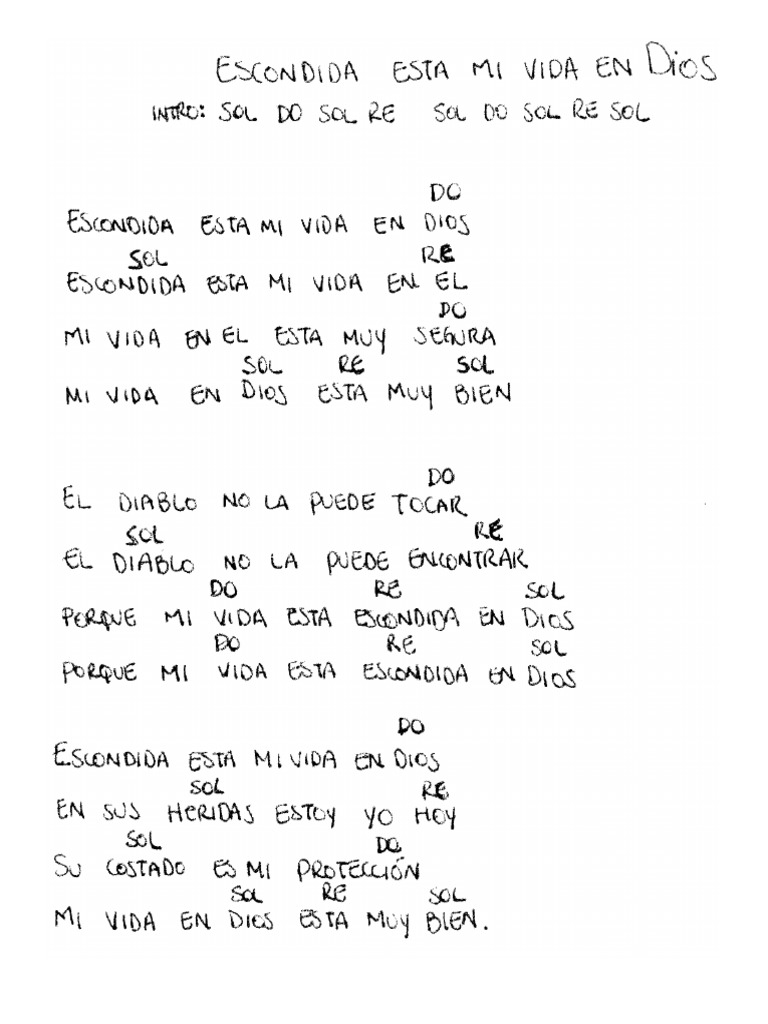 ESCONDIDA ESTA MI VIDA EN DIOS
INTRO: SOL DO SOL RE SOL DO SOL RE SOL
DO
ESCONDIDA ESTA MI VIDA EN DIOS
SOL RE
ESCONDIDA ESTA MI VIDA EN EL
DO
MI VIDA EN EL ESTA MUY SEGURA
SOL RE SOL
MI VIDA EN DIOS ESTA MUY BIEN
DO
EL DIABLO NO LA PUEDE TOCAR
SOL RE
EL DIABLO NO LA PUEDE ENCONTRAR
DO RE SOL
PERQUE MI VIDA ESTA ESCONDIDA EN DIOS
DO RE SOL
PORQUE MI VIDA ESTA ESCONDIDA EN DIOS
DO
ESCONDIDA ESTA MI VIDA EN DIOS
SOL RE
EN SUS HERIDAS ESTOY YO HOY
SOL DO
SU COSTADO ES MI PROTECCIÓN
SOL RE SOL
MI VIDA EN DIOS ESTA MUY BIEN.